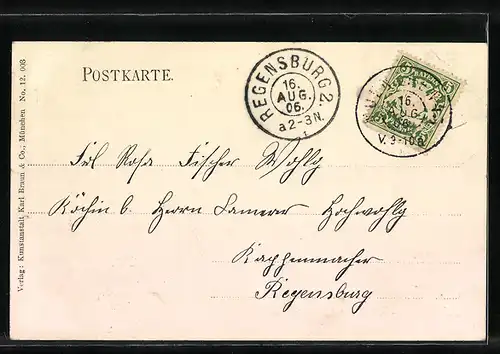 POSTKARTE.
REGENSBURG 2.
16.
AUG.
06.
a2-3N.
1
BAYERN
5 5
16.
AUG
06
V. 9-10
Frl Rosa Fischer Wohlg
Köchin b. Herrn Hochwohlg
Kappenmacher
Regensburg
Verlag: Kunstanstalt Karl Braun & Co., München No. 12, 003